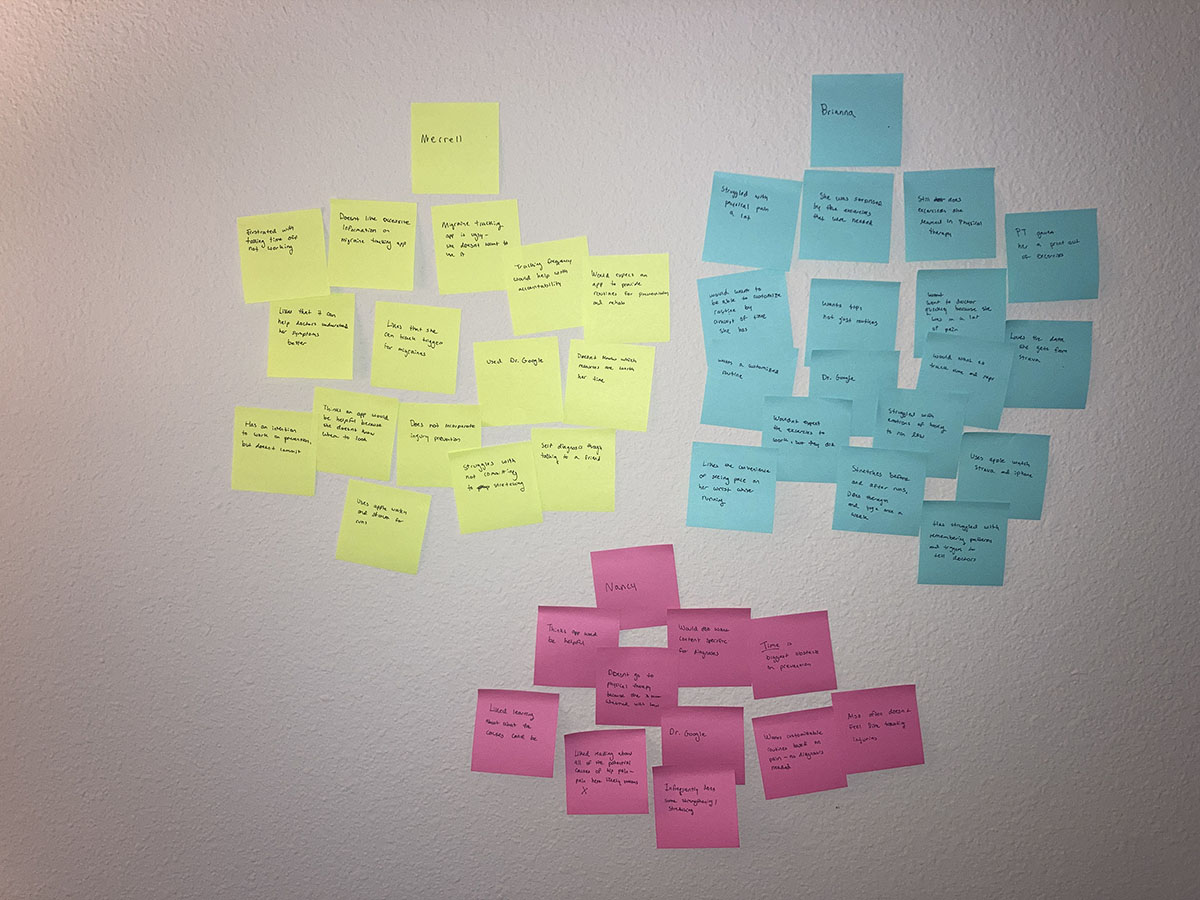 Merrell
Frustrated with
taking time off
not working
Doesn't like excessive
information on
migraine tracking app
Migraine tracking
app is ugly -
she doesn't want to
use it
Tracking frequency
would help with
accountability
Would expect an
app to provide
routines for prevention
and rehab
Likes that it can
help doctors understand
her symptoms
better
Likes that she
can track trigger
for migraines
Used Dr. Google
Doesn't know which
resources are worth
her time
Has an intention
to work on prevention,
but doesn't commit
Thinks an app would
be helpful because
she doesn't know
where to look
Does not incorporate
injury prevention
Struggles with
not committing
to stretching
Self diagnosis though
talking to a friend
Uses apple watch
and strava for
runs
Brianna
Struggled with
physical pain
a lot
She was surprised
by the excersises
that were needed
Still does
excersises she
learned in physical
therapy
PT gave
her a print out
of excersises
Would want to
be able to customize
routine by
amount of time
she has
Wants tips
not just routines
Went to doctor
because she
was in a lot
of pain
Loves the data
she gets from
strava
Wants a customized
routine
Dr. Google
Would want to
track time and reps
Wouldn't expect
the excersises to
work, but they did
Struggled with
emotions of having
to run less
Uses apple watch
strava and iphone
Likes the convenience
of seeing pace on
her wrist while
running
Stretches before
and after runs,
Does theragun
and yoga once a
week
Has struggled with
remembering patterns
and triggers to
tell doctors
Nancy
Thinks app would
be helpful
Would want
content specific
for diagnosis
Time is
biggest obstacle
in prevention
Doesn't go to
physical therapy
because she
Liked learning
about what the
causes could be
Liked reading about
all of the potential
causes of hip pain -
pain here likely means
X
Dr. Google
Wants customizable
routines based on
pain - no diagnosis
needed
Most often doesn't
feel like treating
injuries
Infrequently does
some strengthening/
stretching